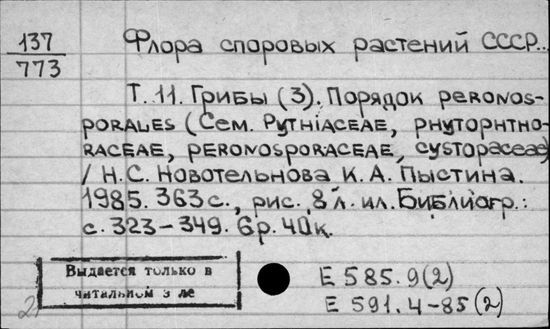 137
773
Флора споровых растений СССР...
Т. 11. Грибы (3). Порядок PERONOS-
PORALES (Сем. PYTHIACEAE, PHYTOPHTHO-
RACEAE, PERONOSPORACEAE, CYSTOPACEAE)
/ Н.С. Новотельнова К. А. Пыстина.
1985. 363 с., рис., 8 л. ил. Библиогр.:
с. 323-349. 6 р. 40 к.
Выдается только в
читальном з ле
Е 585.9(2)
Е 591.4-85(2)